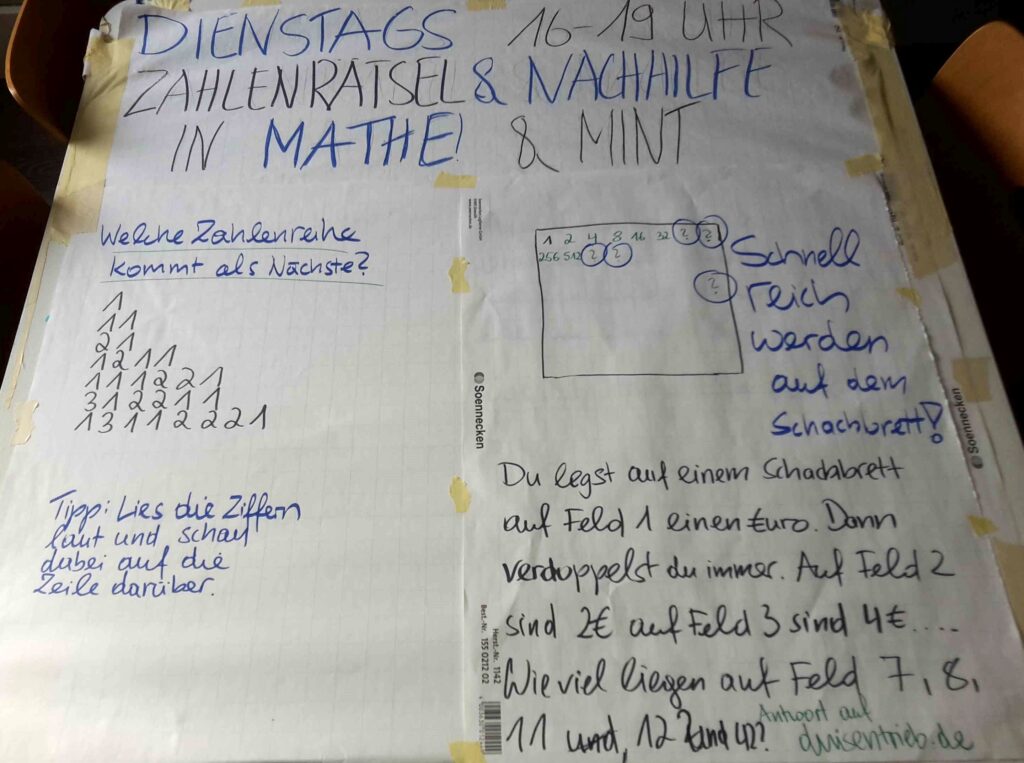 DIENSTAGS 16-19 UHR
ZAHLENRÄTSEL & NACHHILFE
IN MATHE! & MINT
Welche Zahlenreihe
kommt als Nächste?
1
11
21
1211
111221
312211
13112221
Tipp: Lies die Ziffern
laut und schau
dabei auf die
Zeile darüber.
1 2 4 8 16 32 ? ?
256 512 ? ?
?
Schnell
reich
werden
auf dem
Schachbrett!
Du legst auf einem Schachbrett
auf Feld 1 einen Euro. Dann
verdoppelst du immer. Auf Feld 2
sind 2€ auf Feld 3 sind 4€....
Wie viel liegen auf Feld 7, 8,
11 und, 12 und 42?
Antwort auf
duisentrieb.de
Soennecken
Soennecken
Herst.-Nr. 1142
Best.-Nr. 155 0212 02